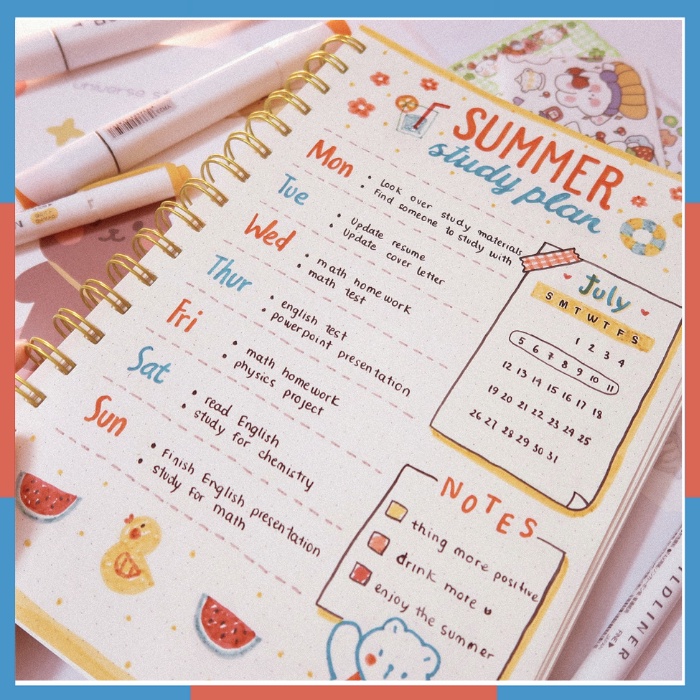 SUMMER
study plan
Mon
• Look over study materials
• Find someone to study with
Tue
• Update resume
• Update cover letter
Wed
• math homework
• math test
Thur
• english test
• powerpoint presentation
Fri
• math homework
• physics project
Sat
• read English
• study for chemistry
Sun
• Finish English presentation
• study for math
July
S M T W T F S
1 2 3 4
5 6 7 8 9 10 11
12 13 14 15 16 17 18
19 20 21 22 23 24 25
26 27 28 29 30 31
NOTES
thing more positive
drink more
enjoy the summer
universe